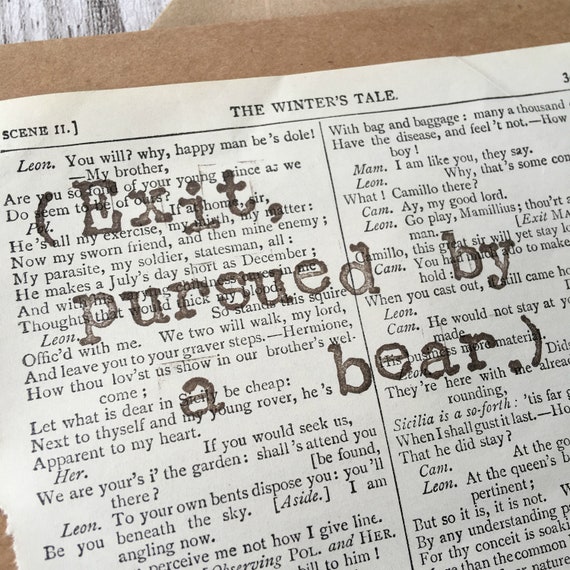 THE WINTER'S TALE.
SCENE II.]
(Exit,
pursued by
a bear.)
Leon. You will? why, happy man be's dole!
—My brother,
Are you so fond of your young prince as we
Do seem to be of ours?
Pol. If at home, sir,
He's all my exercise, my mirth, my matter:
Now my sworn friend, and then mine enemy;
My parasite, my soldier, statesman, all:
He makes a July's day short as December;
And with in me
Thoughts that would thick my blood.
Leon. So stands this squire
Offic'd with me. We two will walk, my lord,
And leave you to your graver steps.—Hermione,
How thou lov'st us show in our brother's wel-
come;
Let what is dear in Sicily be cheap:
Next to thyself and my young rover, he's
Apparent to my heart.
Her. If you would seek us,
We are your's i' the garden: shall's attend you
there? [be found,
Leon. To your own bents dispose you: you'll
Be you beneath the sky. [Aside.] I am
angling now.
perceive me not how I give line.
[Observing POL. and HER.
bill to him!
With bag and baggage: many a thousand
Have the disease, and feel't not.—How
boy!
Mam. I am like you, they say.
Leon. Why, that's some
What! Camillo there?
Cam. Ay, my good lord.
Leon. Go play, Mamillius; thou'rt a
man. [Exit
Camillo, this great sir will yet stay
Cam. You had to make
hold
When you cast out, it still came
Leon.
Cam. He would not stay at
made
His business more material.
Leon.
They're here with me already
rounding,
Sicilia is a so-forth: 'tis far
When I shall gust it last.—
That he did stay?
Cam. At the
Leon. At the queen's
pertinent;
But so it is, it is not.
By any understanding
For thy conceit is
than the common